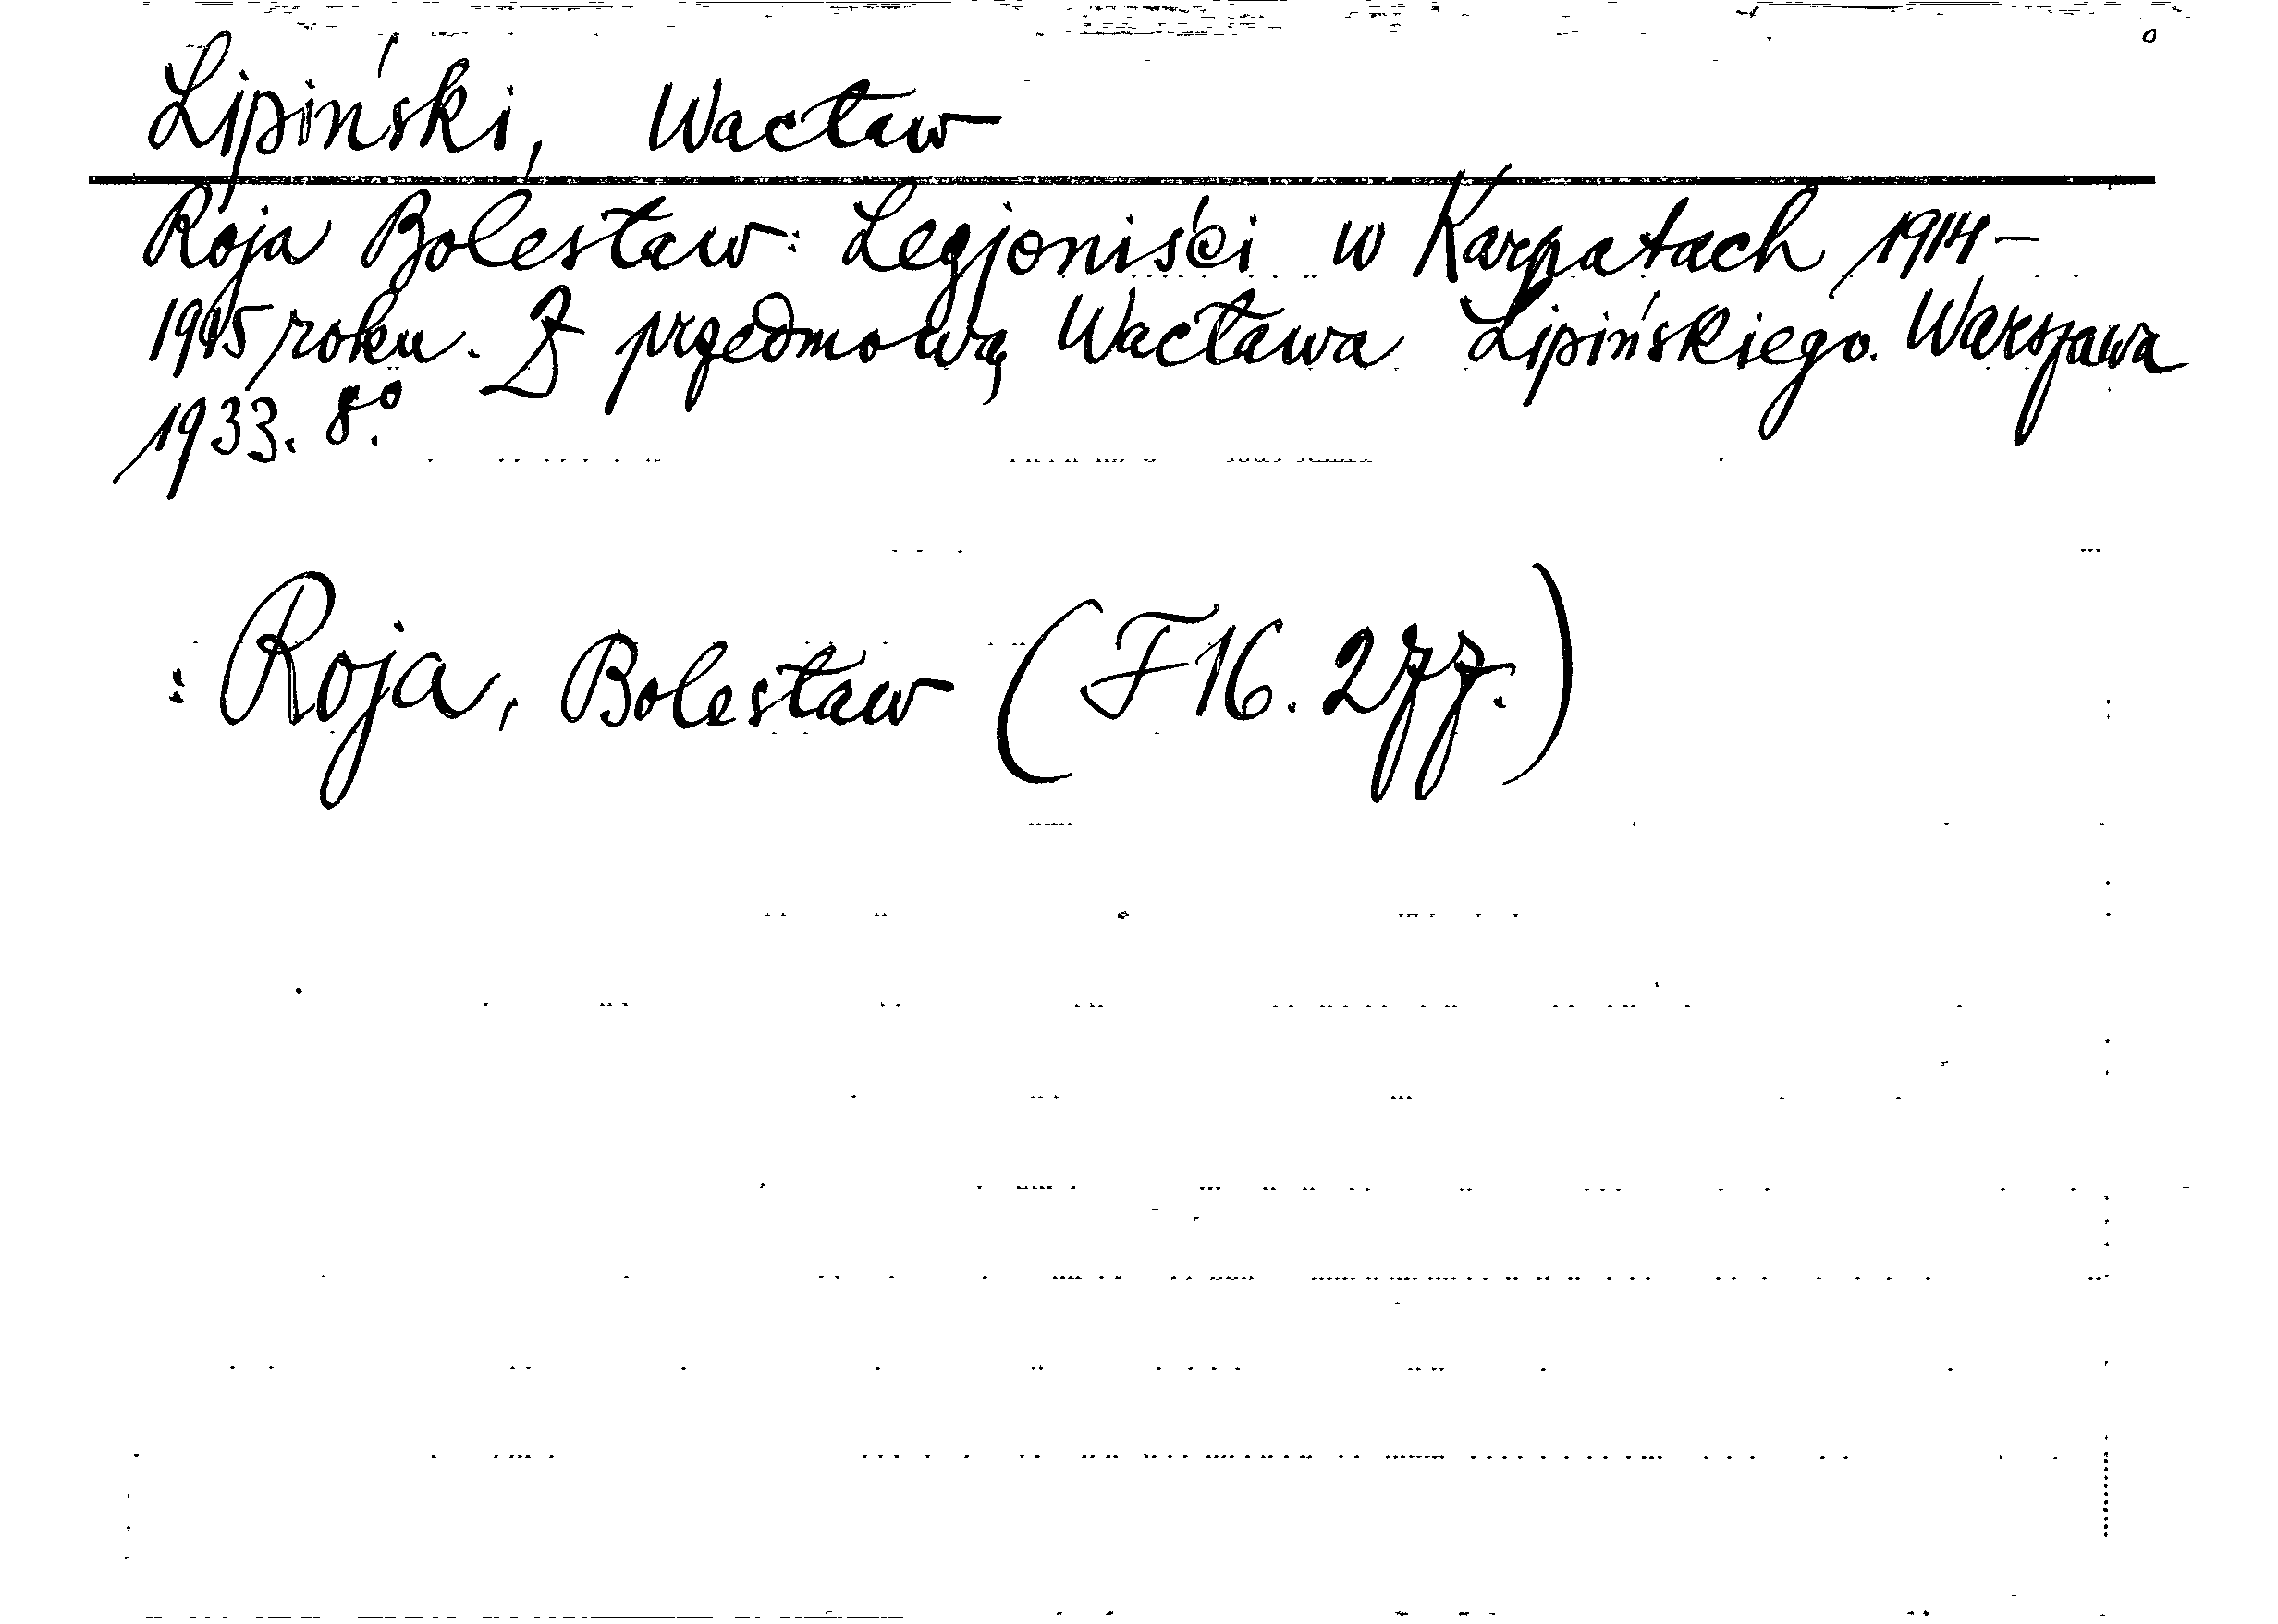 Lipiński, Wacław
Roja Bolesław: Legjoniści w Karpatach 1914-
1915 roku. Z przedmową Wacława Lipińskiego. Warszawa
1933. 8º.
: Roja, Bolesław (F16. 277.)